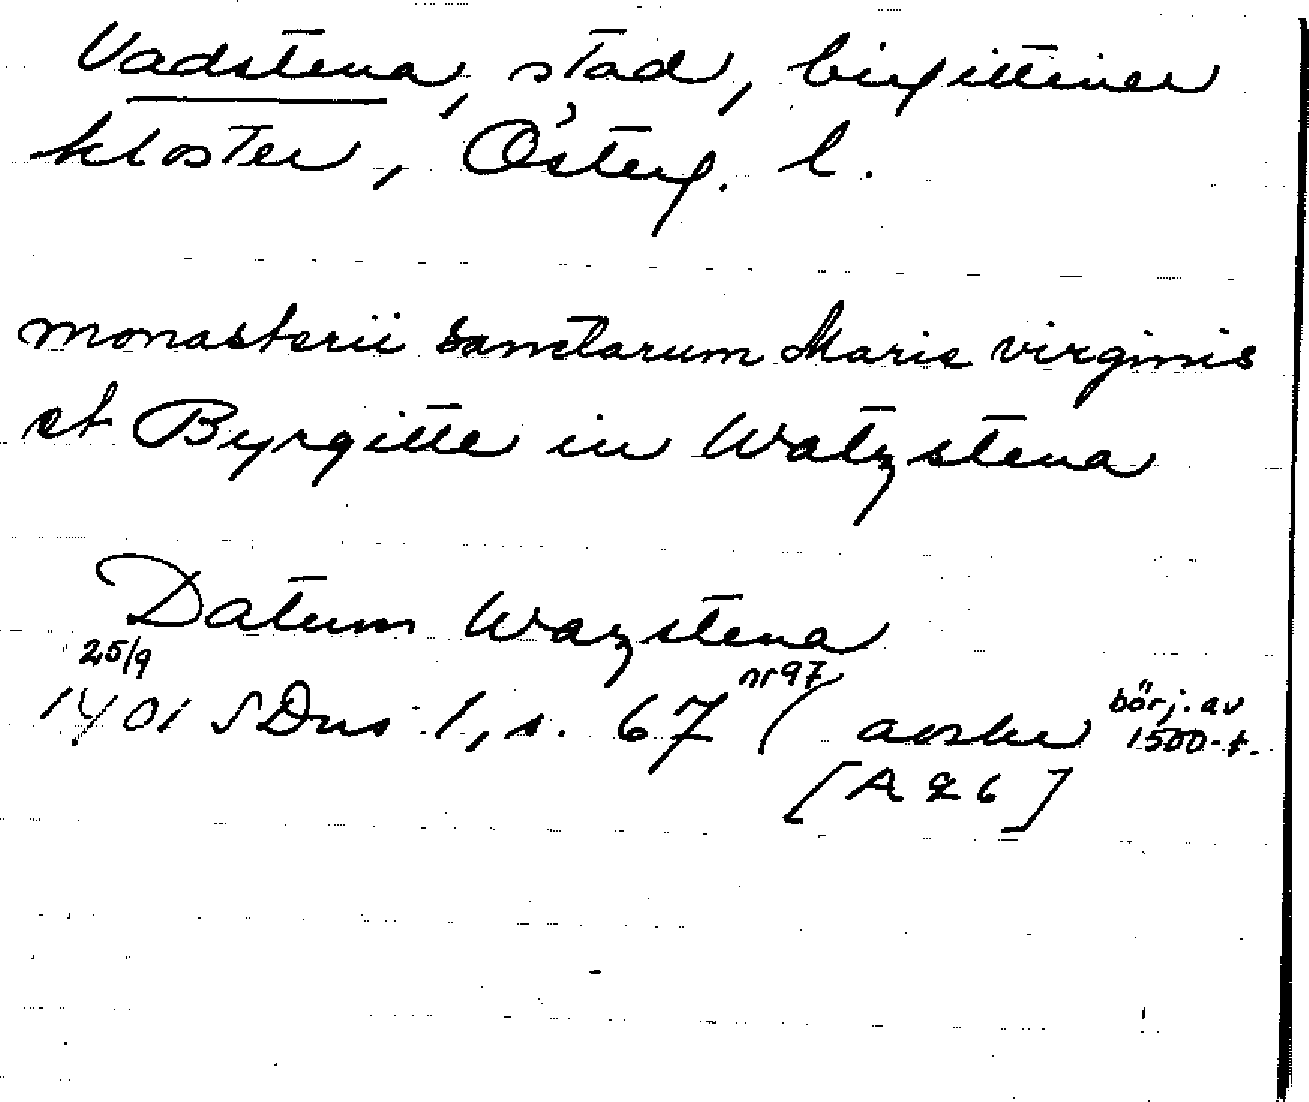 Vadstena, stad, birgittiner
kloster, Österg. l.
monasterii sanctarum Marie virginis
et Byrgitte in Watzstena
Datum Wazstena
25/9 nr 97
1401 SDns 1, s. 67 ( avskr börj. av
1500-t.
[A 26]